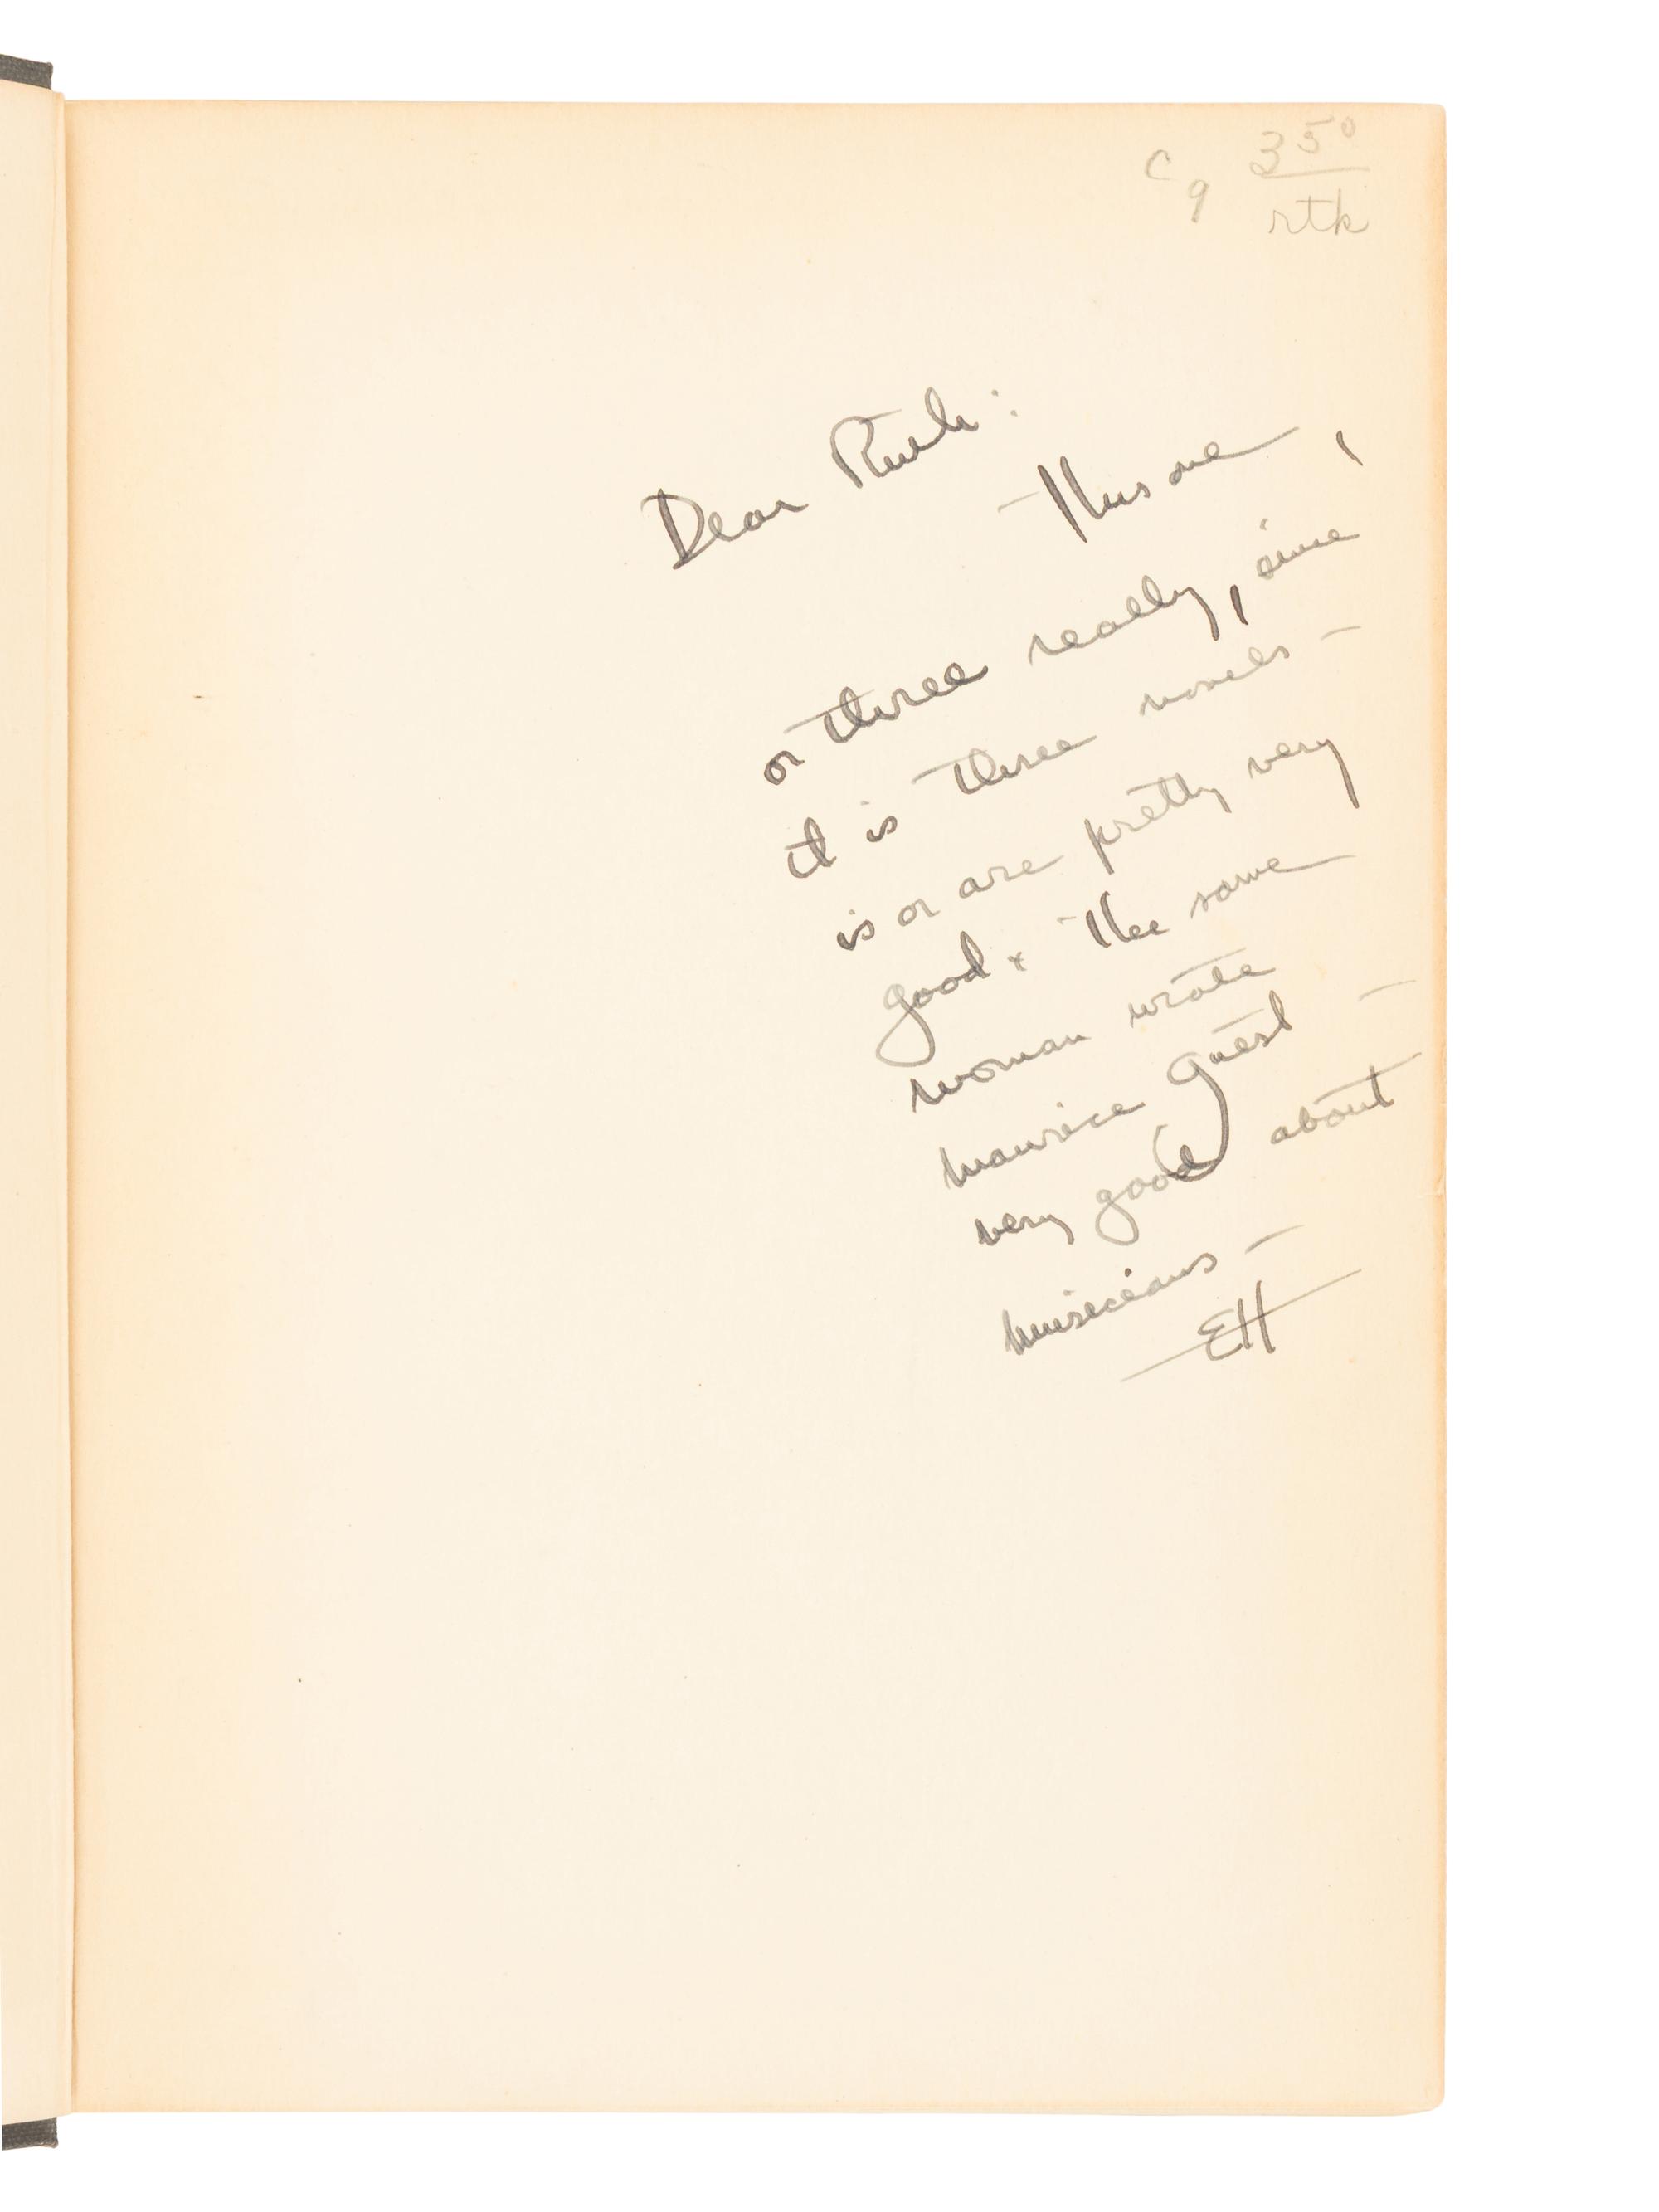 c 9 3 50
rtk
Dear Ruth:
This one,
or three really, since
it is three novels —
is or are pretty very
good. The same
woman wrote
Maurice Guest —
very good about
musicians —
EH